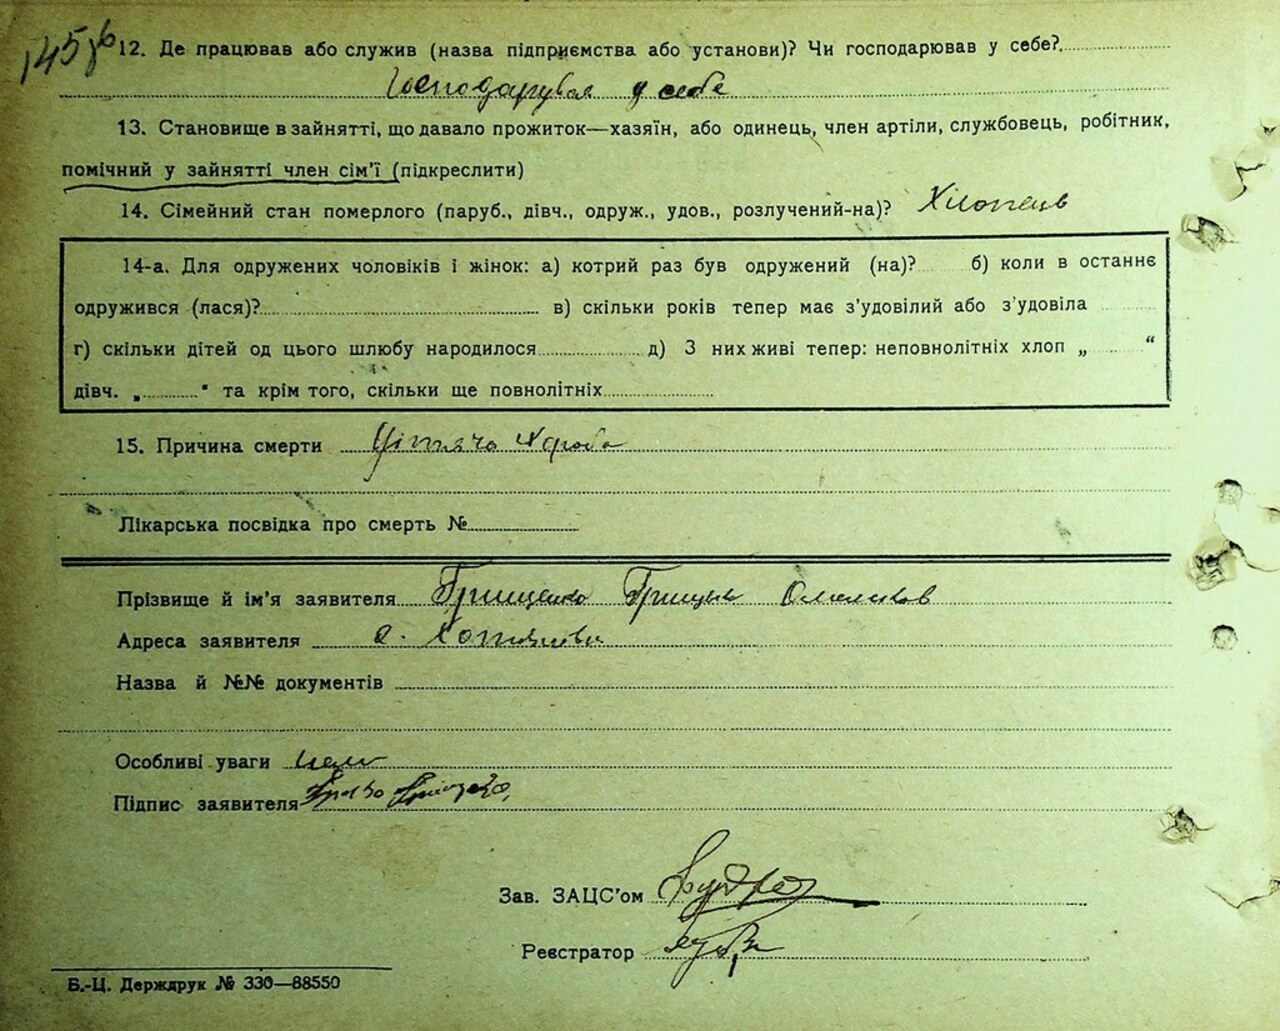 145зв
12. Де працював або служив (назва підприємства або установи)? Чи господарював у себе?
Господарував у себе
13. Становище в зайнятті, що давало прожиток—хазяїн, або одинець, член артілі, службовець, робітник,
помічний у зайнятті член сім'ї (підкреслити)
14. Сімейний стан померлого (паруб., дівч., одруж., удов., розлучений-на)? Хлопець
14-а. Для одружених чоловіків і жінок: а) котрий раз був одружений (на)? б) коли в останнє
одружився (лася)? в) скільки років тепер має з'удовілий або з'удовіла
г) скільки дітей од цього шлюбу народилося д) З них живі тепер: неповнолітніх хлоп „ “
дівч. „ “ та крім того, скільки ще повнолітніх
15. Причина смерти Дітяча хороба
Лікарська посвідка про смерть №
Прізвище й ім'я заявителя Грищенко Грицько Омельков
Адреса заявителя с.
Назва й №№ документів
Особливі уваги
Підпис заявителя
Зав. ЗАЦС'ом
Реєстратор
Б.-Ц. Держдрук № 330—88550